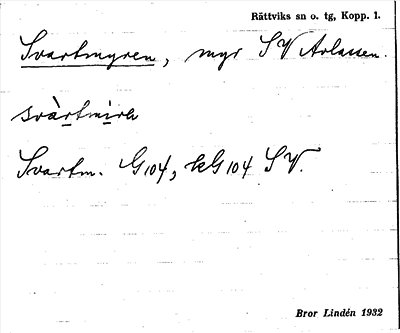 Rättviks sn o. tg, Kopp. 1.
Svartmyren, myr SV Arlassen.
svàrtmirα
Svartm. G104, kG104 SV.
Bror Lindén 1932